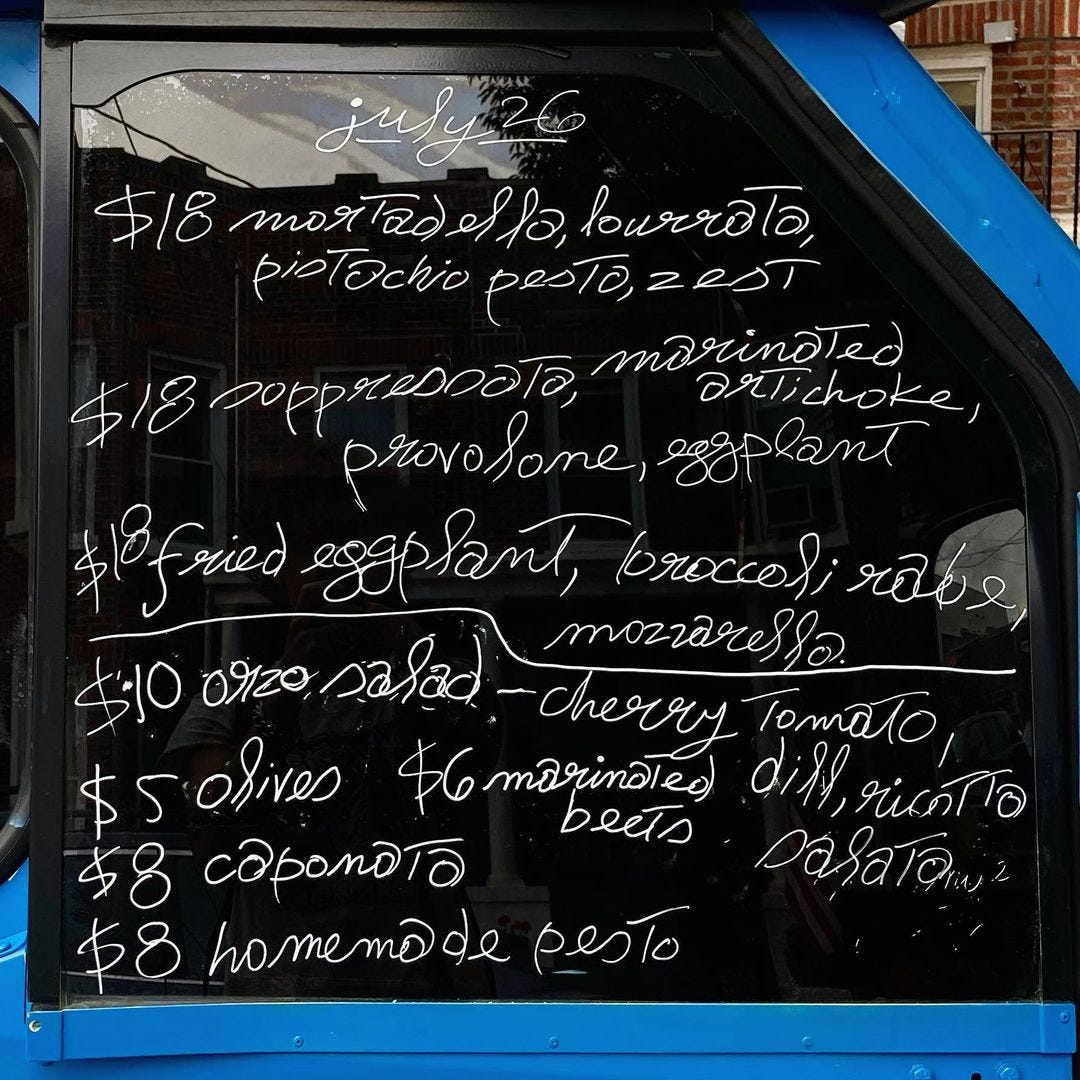 july 26
$18 mortadella, burrata,
pistachio pesto, zest
$18 soppressata, marinated
artichoke,
provolone, eggplant
$18 fried eggplant, broccoli rabe,
mozzarella.
$10 orzo salad - cherry tomato,
dill, ricotta
salata
$5 olives $6 marinated
beets
$8 caponata
$8 homemade pesto